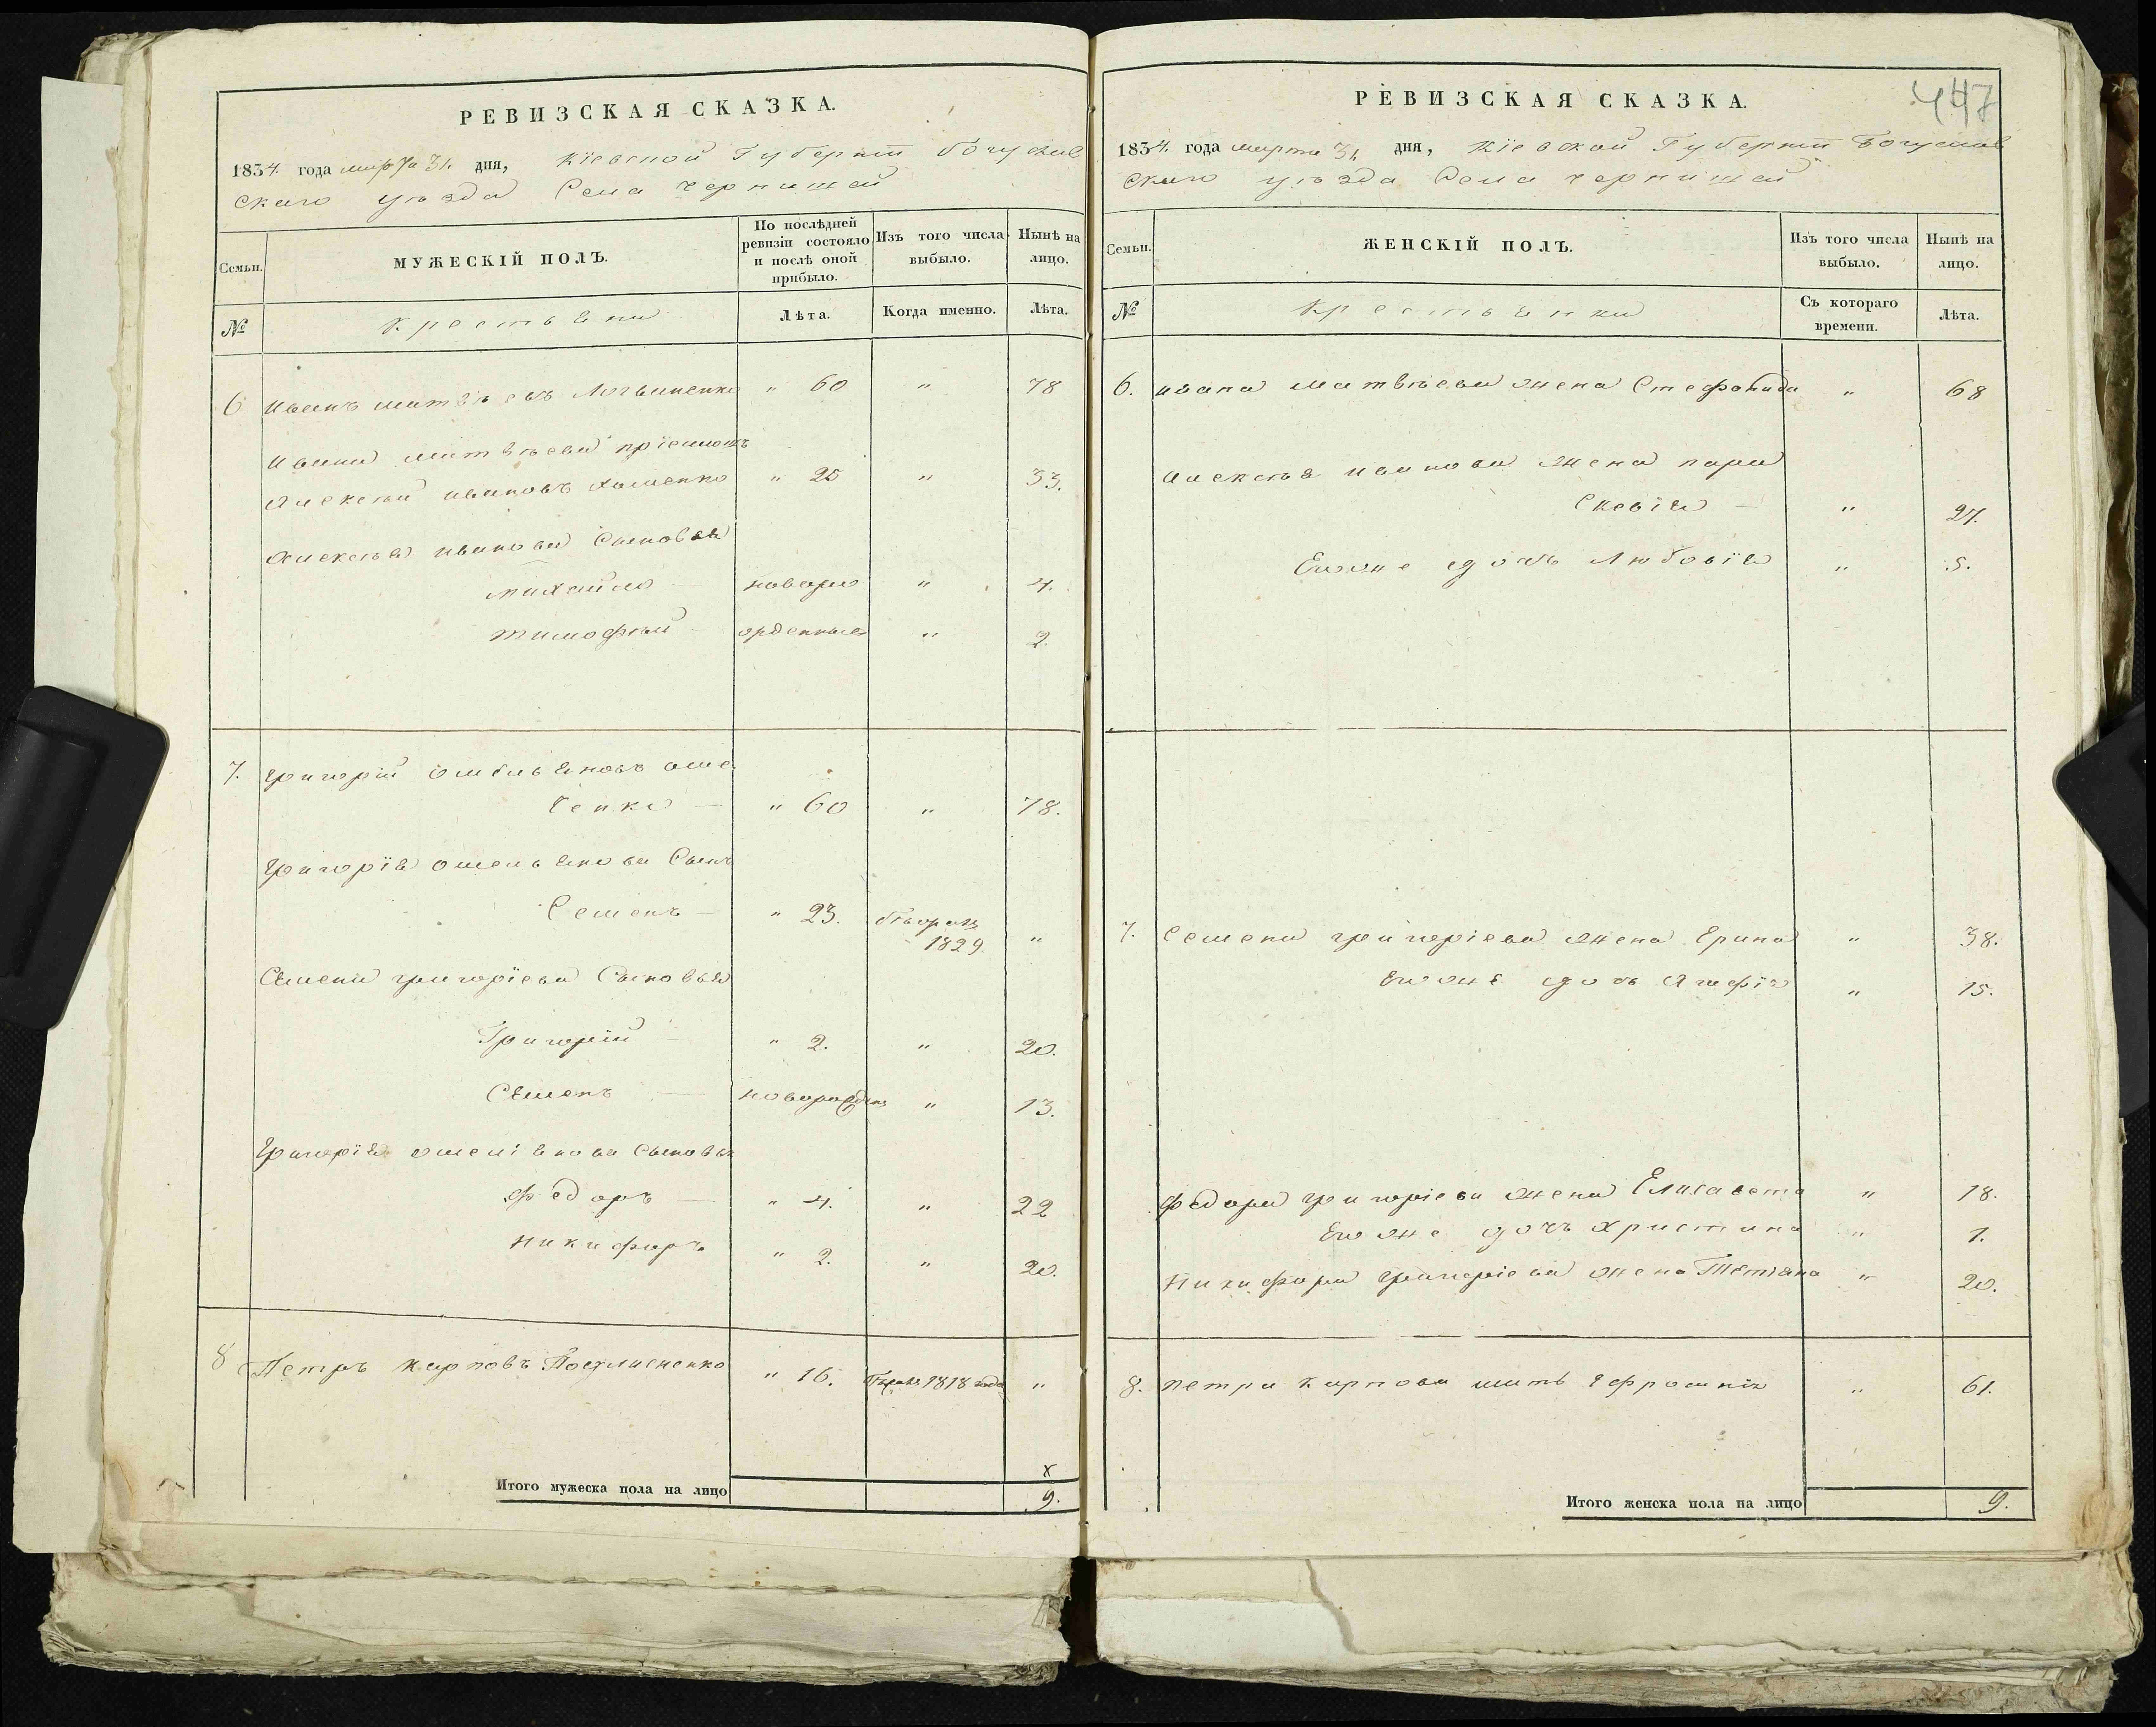 РЕВИЗСКАЯ СКАЗКА.
1834 года марта 31 дня, Кіевской Губерніи Богуслав
скаго уѣзда Села Чернишей
Семьи.
МУЖЕСКІЙ ПОЛЪ.
По послѣдней ревизіи состояло и послѣ оной прибыло.
Изъ того числа выбыло.
Нынѣ на лицо.
№
Крестьяни
Лѣта.
Когда именно.
Лѣта.
6 Иванъ Матвѣевъ Логвиненко " 60 " 78
Ивана Матвѣева пріемышъ
Алексѣй Ивановъ " 25 " 33.
Алексѣя Иванова Сыновья
Михайло — новоро " 4.
Тимофѣй орденные " 2.
7. Григорій Омельяновъ Оме
ченко — " 60 " 78.
Григорія Омельянова Сынъ
Семенъ — " 23. 1829. "
Семена Григоріева Сыновья
Григорій — " 2. " 20.
Семенъ — новорожден " 13.
Григорія Омельянова Сыновья
Федоръ — " 4. " 22
Никифоръ " 2. " 20.
8 Петръ Карповъ " 16. 1818 года "
х
Итого мужеска пола на лицо 9.
447
РЕВИЗСКАЯ СКАЗКА.
1834. года марта 31 дня, Кіевской Губерніи Богуслав
скаго уѣзда Села Чернишей
Семьи.
ЖЕНСКІЙ ПОЛЪ.
Изъ того числа выбыло.
Нынѣ на лицо.
№
Крестьянки
Съ котораго времени.
Лѣта.
6. Ивана Матвѣева жена Стефанида " 68
Алексѣя Иванова жена Пара
скевія — " 27.
Егоже дочь Любовія " 5.
7. Семена Григоріева жена Ерина " 38.
Егоже дочь Агафія " 15.
Федора Григоріева жена Елисавета " 18.
Егоже дочъ Христина " 1.
Никифора Григоріева жена Тетіана " 20.
8. Петра Карпова мать Ефросинія " 61.
Итого женска пола на лицо 9.